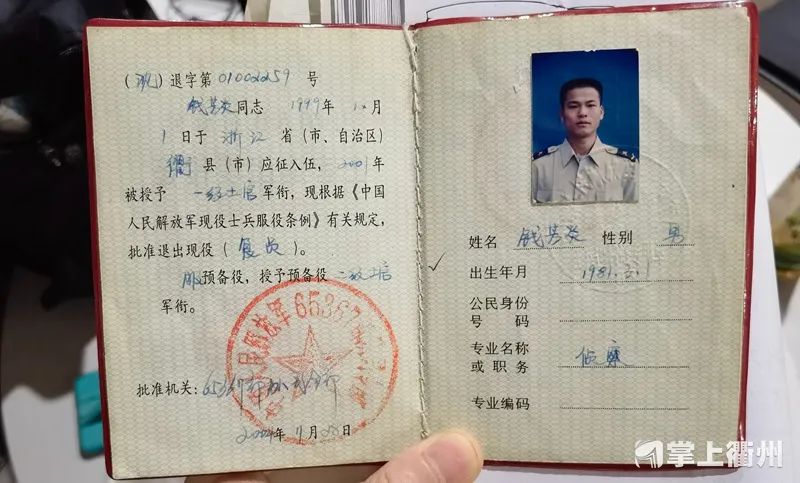 退字第01002259号
同志 1999年12月
1日于浙江省（市、自治区）
衢县（市）应征入伍，2001年
被授予一级士官军衔，现根据《中国
人民解放军现役士兵服役条例》有关规定，
批准退出现役（复员）。
服预备役，授予预备役二级士官
军衔。
批准机关：
2004年11月25日
65367
姓名 性别 男
出生年月 1981.2.1
公民身份
号码
专业名称
或职务 侦察
专业编码
掌上衢州